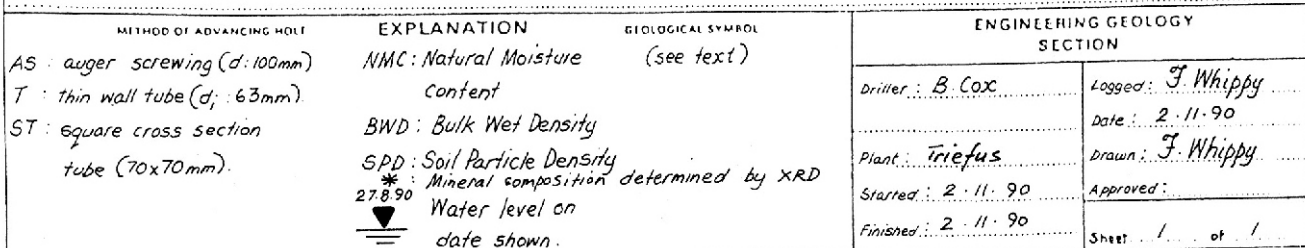 METHOD OF ADVANCING HOLE
AS : auger screwing (d: 100mm)
T : thin wall tube (di : 63mm).
ST : square cross section
tube (70x70mm).
EXPLANATION
NMC : Natural Moisture
Content
BWD : Bulk Wet Density
SPD : Soil Particle Density
* : Mineral composition determined by XRD
27.8.90
Water level on
date shown.
GEOLOGICAL SYMBOL
(see text)
ENGINEERING GEOLOGY
SECTION
Driller : B. Cox
Plant : Triefus
Started : 2 · 11 · 90
Finished : 2 · 11 · 90
Logged : F. Whippy
Date : 2 · 11 · 90
Drawn : F. Whippy
Approved :
Sheet 1 of 1